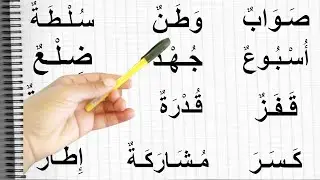 صَوَابٌ وَطَنٌ سُلْطَةٌ
أُسْبُوعٌ جُهْد ضِلْعٌ
قَفَزٌ قُدْرَةٌ
كَسَرَ مُشَارَكَةٌ إِطَار